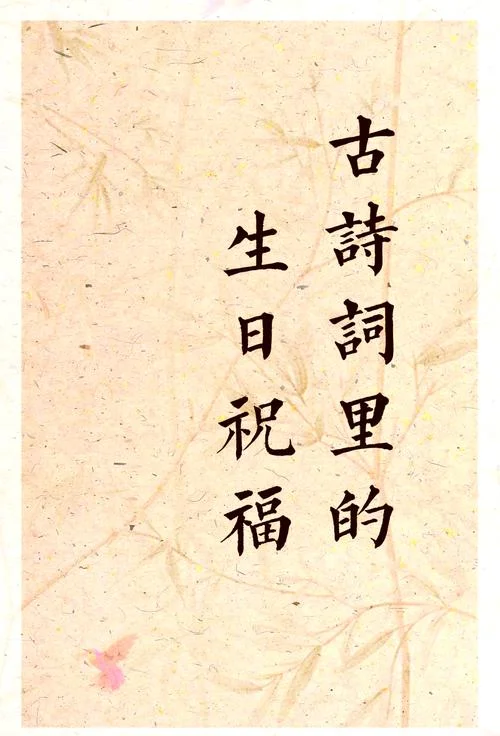 古詩詞里的
生日祝福